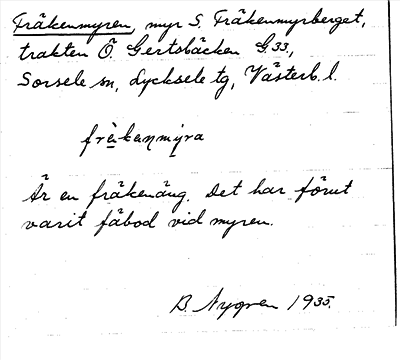 Fräkenmyren, myr S. Fräkenmyrberget,
trakten Ö. Gertsbäcken G33,
Sorsele sn, Lycksele tg, Västerb. l.
frèkenmỳra
Är en fräkenäng. Det har förut
varit fäbod vid myren.
B. Nygren 1935.